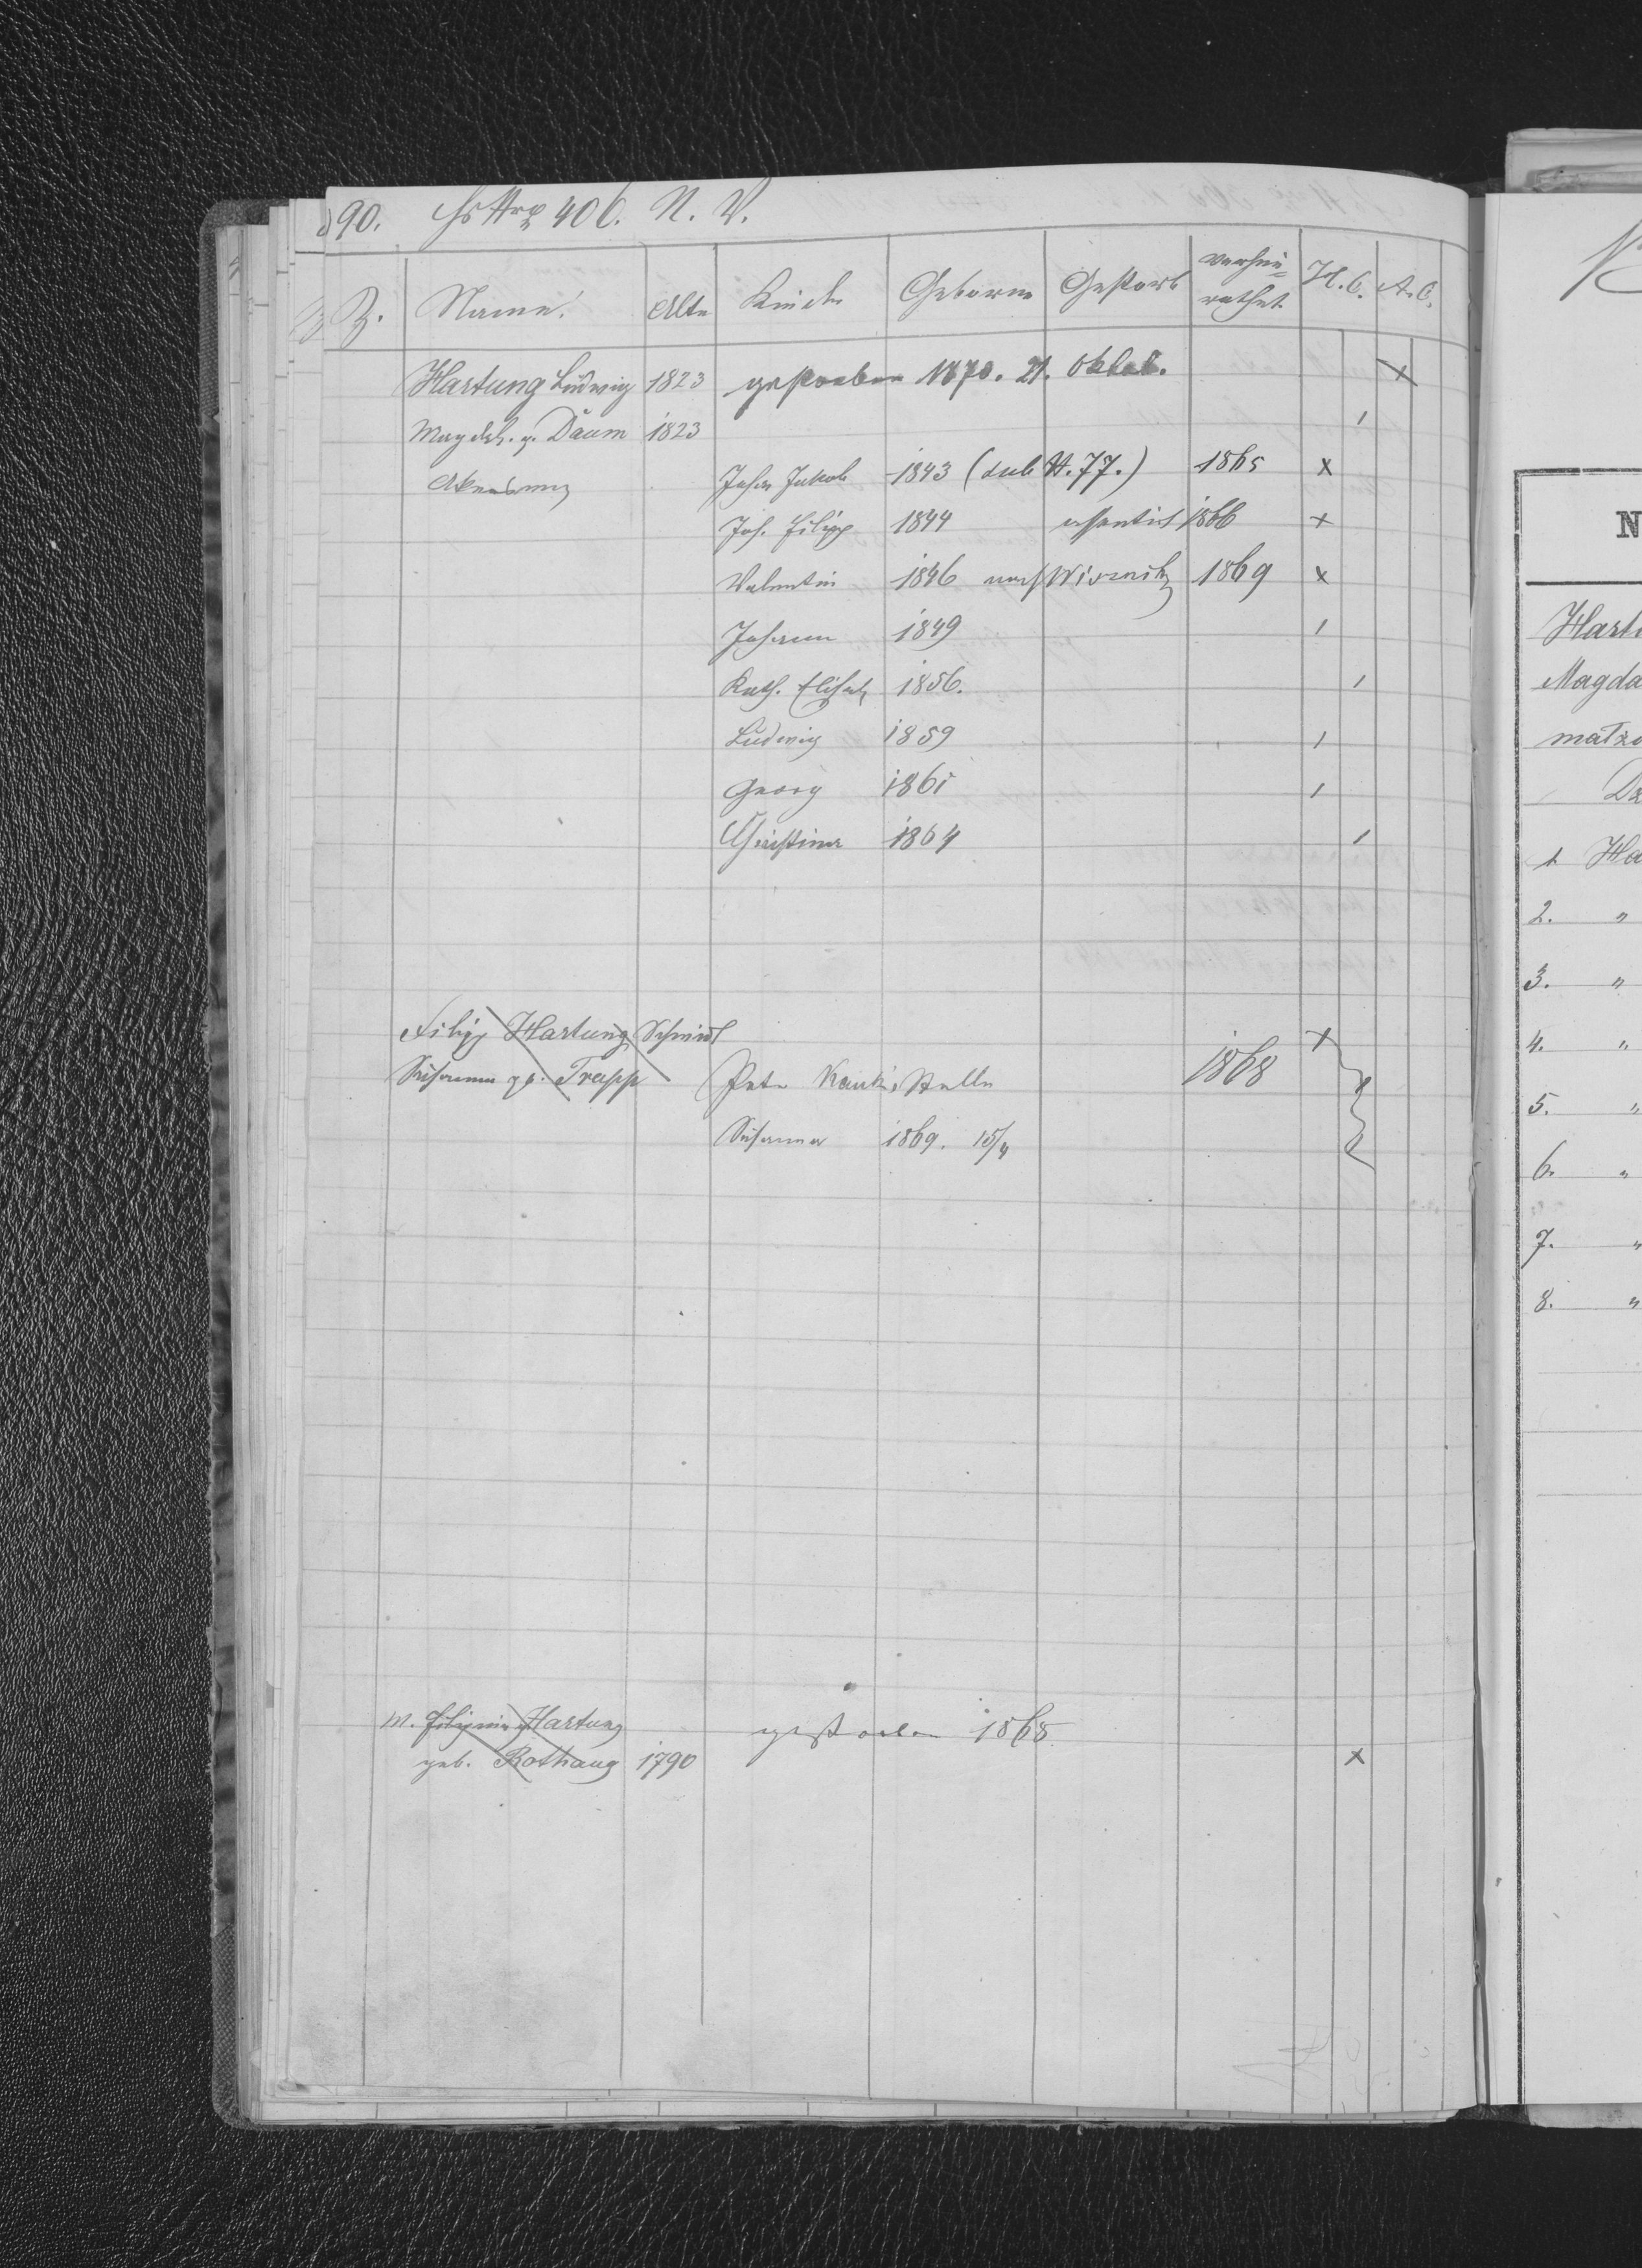 90. 406. N. V.
Z. Name. Alte Kinder Geboren Gestorb verhei=
rathet. H.C. A.C.
Hartung Ludwig 1823 gestorben 1870. 21. Oktob. x
Magdal. g. Daum 1823
Johan Jakob 1843 (sub N. 77.) 1865 x
Joh. Filipp 1844 assentirt 1866 x
Valentin 1846 nach Wisznitz 1869 x
Johann 1849
Kath. Elisab 1856.
Ludwig 1859
Georg 1861
Christina 1864
Filipp Hartung Schmidt x
Susanna geb. Trapp Peter Stelle 1868
Susanna 1869. 15/4
M. Filippina Hartung gestorben 1865
geb. Rothaug 1790 x
N
Hart
Magda
matżo
Dz
1 Ha
2. "
3. "
4. "
5. "
6. "
7. "
8. "